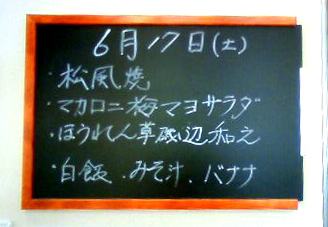 6月17日(土)
・松風焼
・マカロニ梅マヨサラダ
・ほうれん草磯辺和え
・白飯 ・みそ汁 ・バナナ